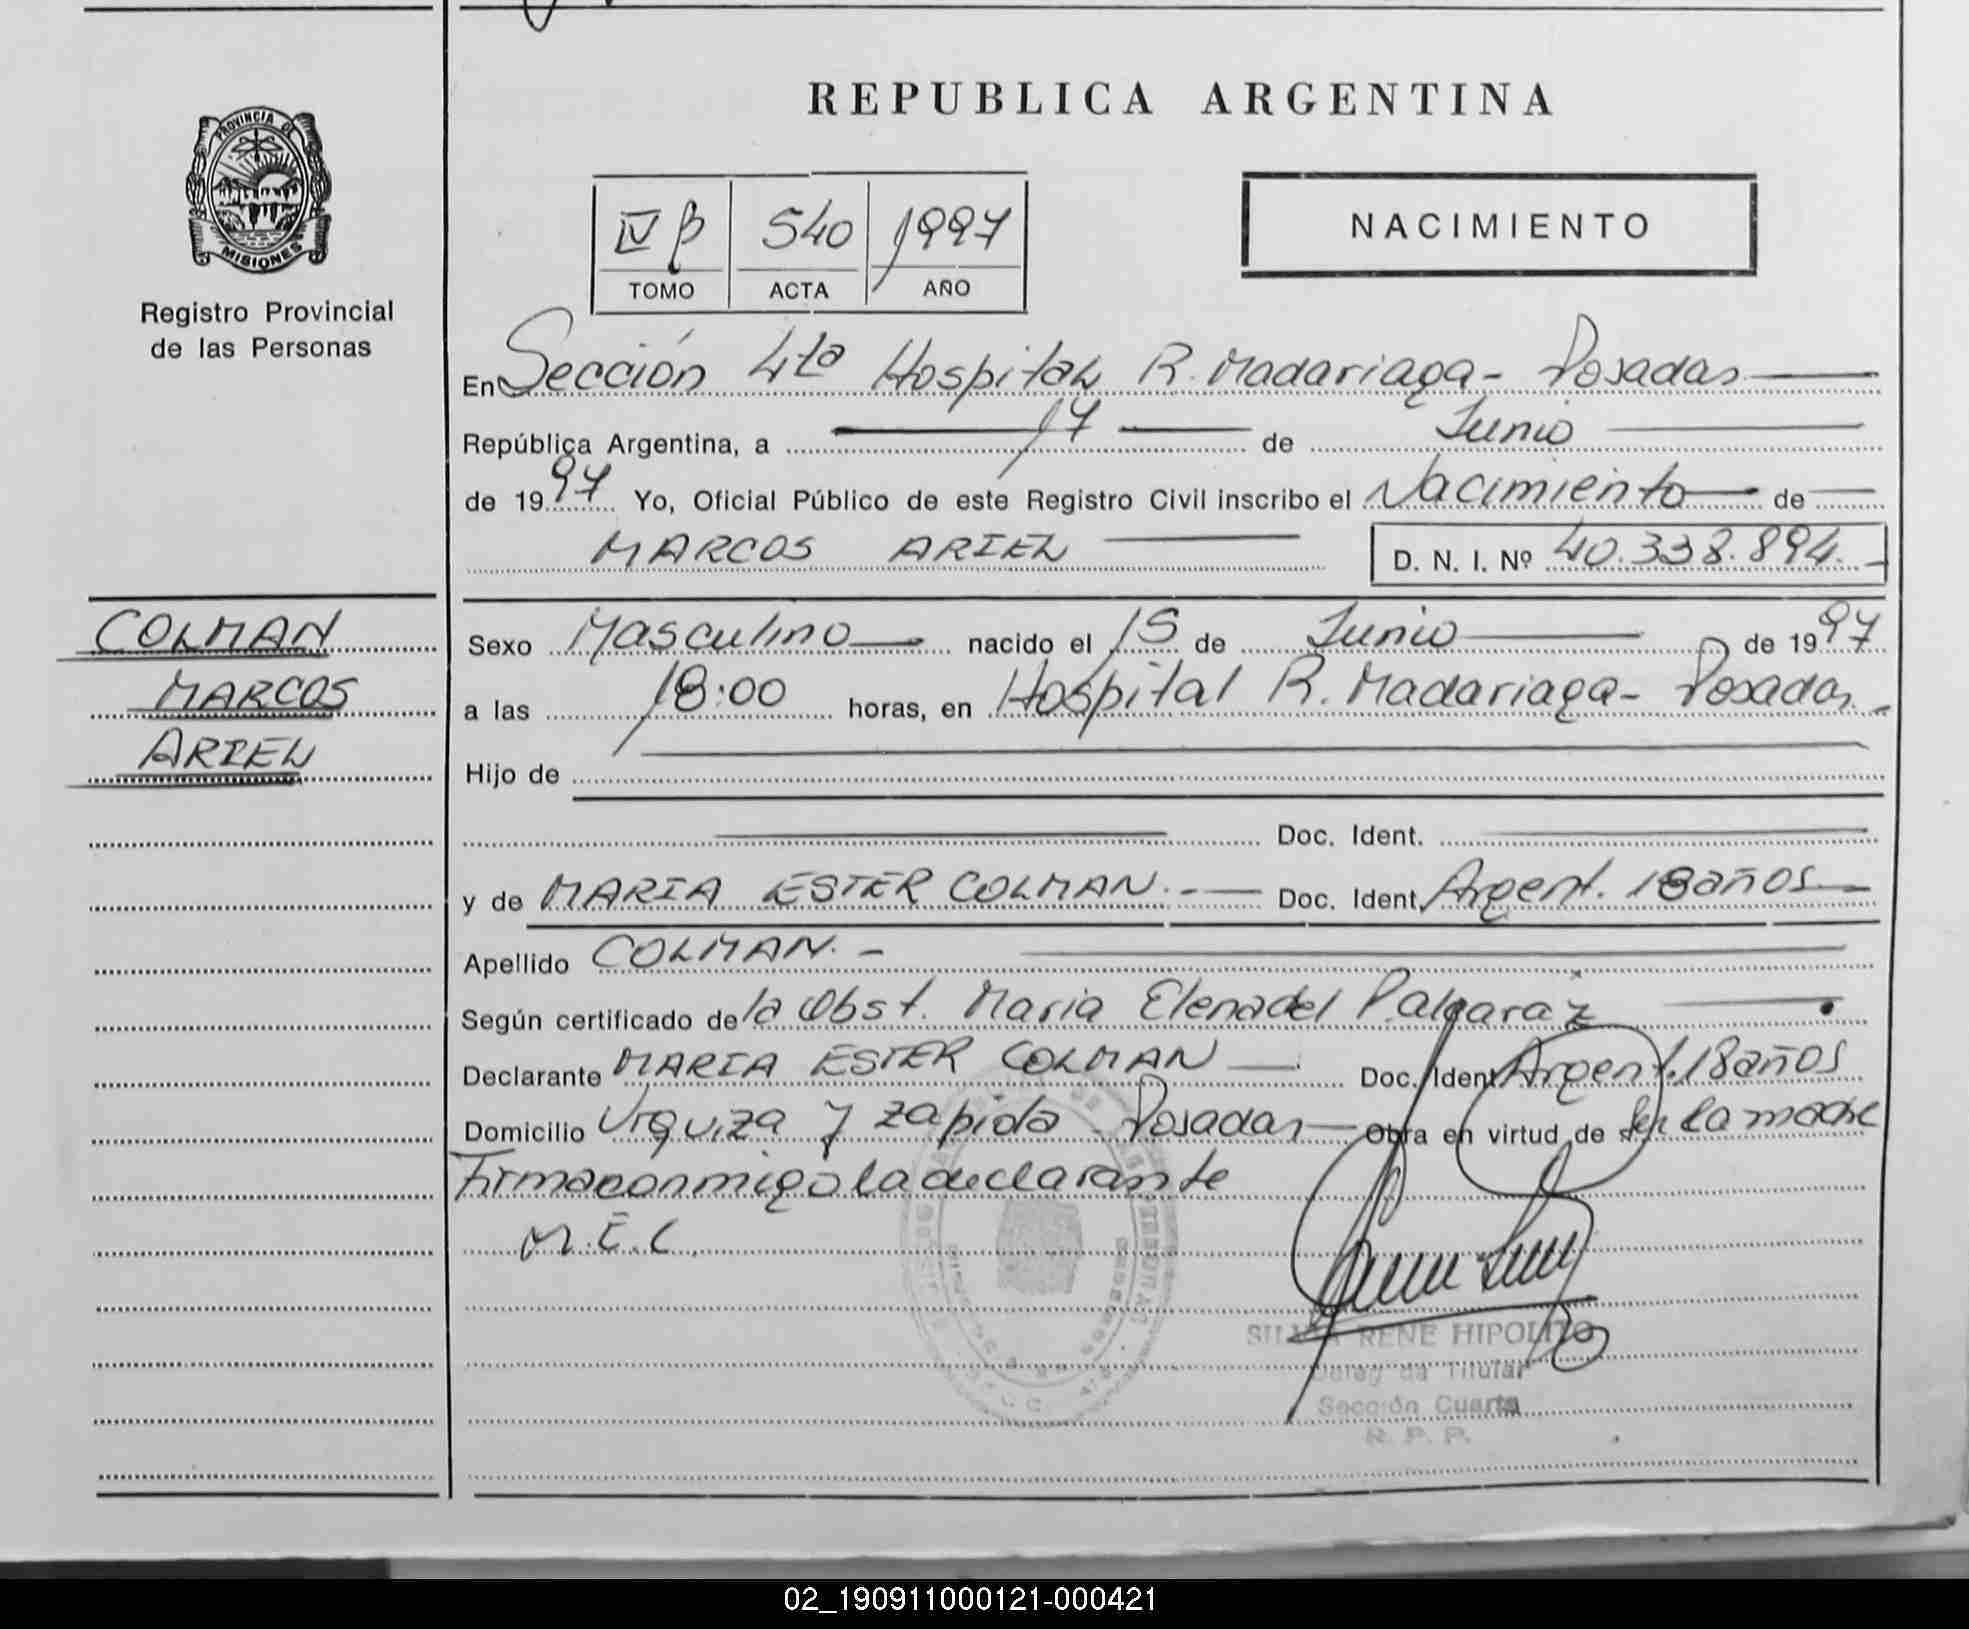 REPUBLICA ARGENTINA
PROVINCIA DE
MISIONES
Registro Provincial
de las Personas
IV β 540 1997
TOMO ACTA AÑO
NACIMIENTO
En Sección 4ta Hospital R. Madariaga - Posadas
República Argentina, a 17 de Junio
de 1997 Yo, Oficial Público de este Registro Civil inscribo el Nacimiento de
MARCOS ARIEL D. N. I. Nº 40.338.894.-
COLMAN
MARCOS
ARIEL
Sexo Masculino nacido el 15 de Junio de 1997
a las 18:00 horas, en Hospital R. Madariaga - Posadas.-
Hijo de
Doc. Ident.
y de MARIA ESTER COLMAN.- Doc. Ident. Argent. 18 años
Apellido COLMAN.-
Según certificado de la Obst. Maria Elena del P. Algaraz
Declarante MARIA ESTER COLMAN Doc. Ident. Argent. 18 años
Domicilio Urquiza y Zapiola - Posadas Obra en virtud de Ser la madre
Firma conmigo la declarante
M.E.C.
RENE HIPOLITO
Titular
Sección Cuarta
R. P. P.
02_190911000121-000421